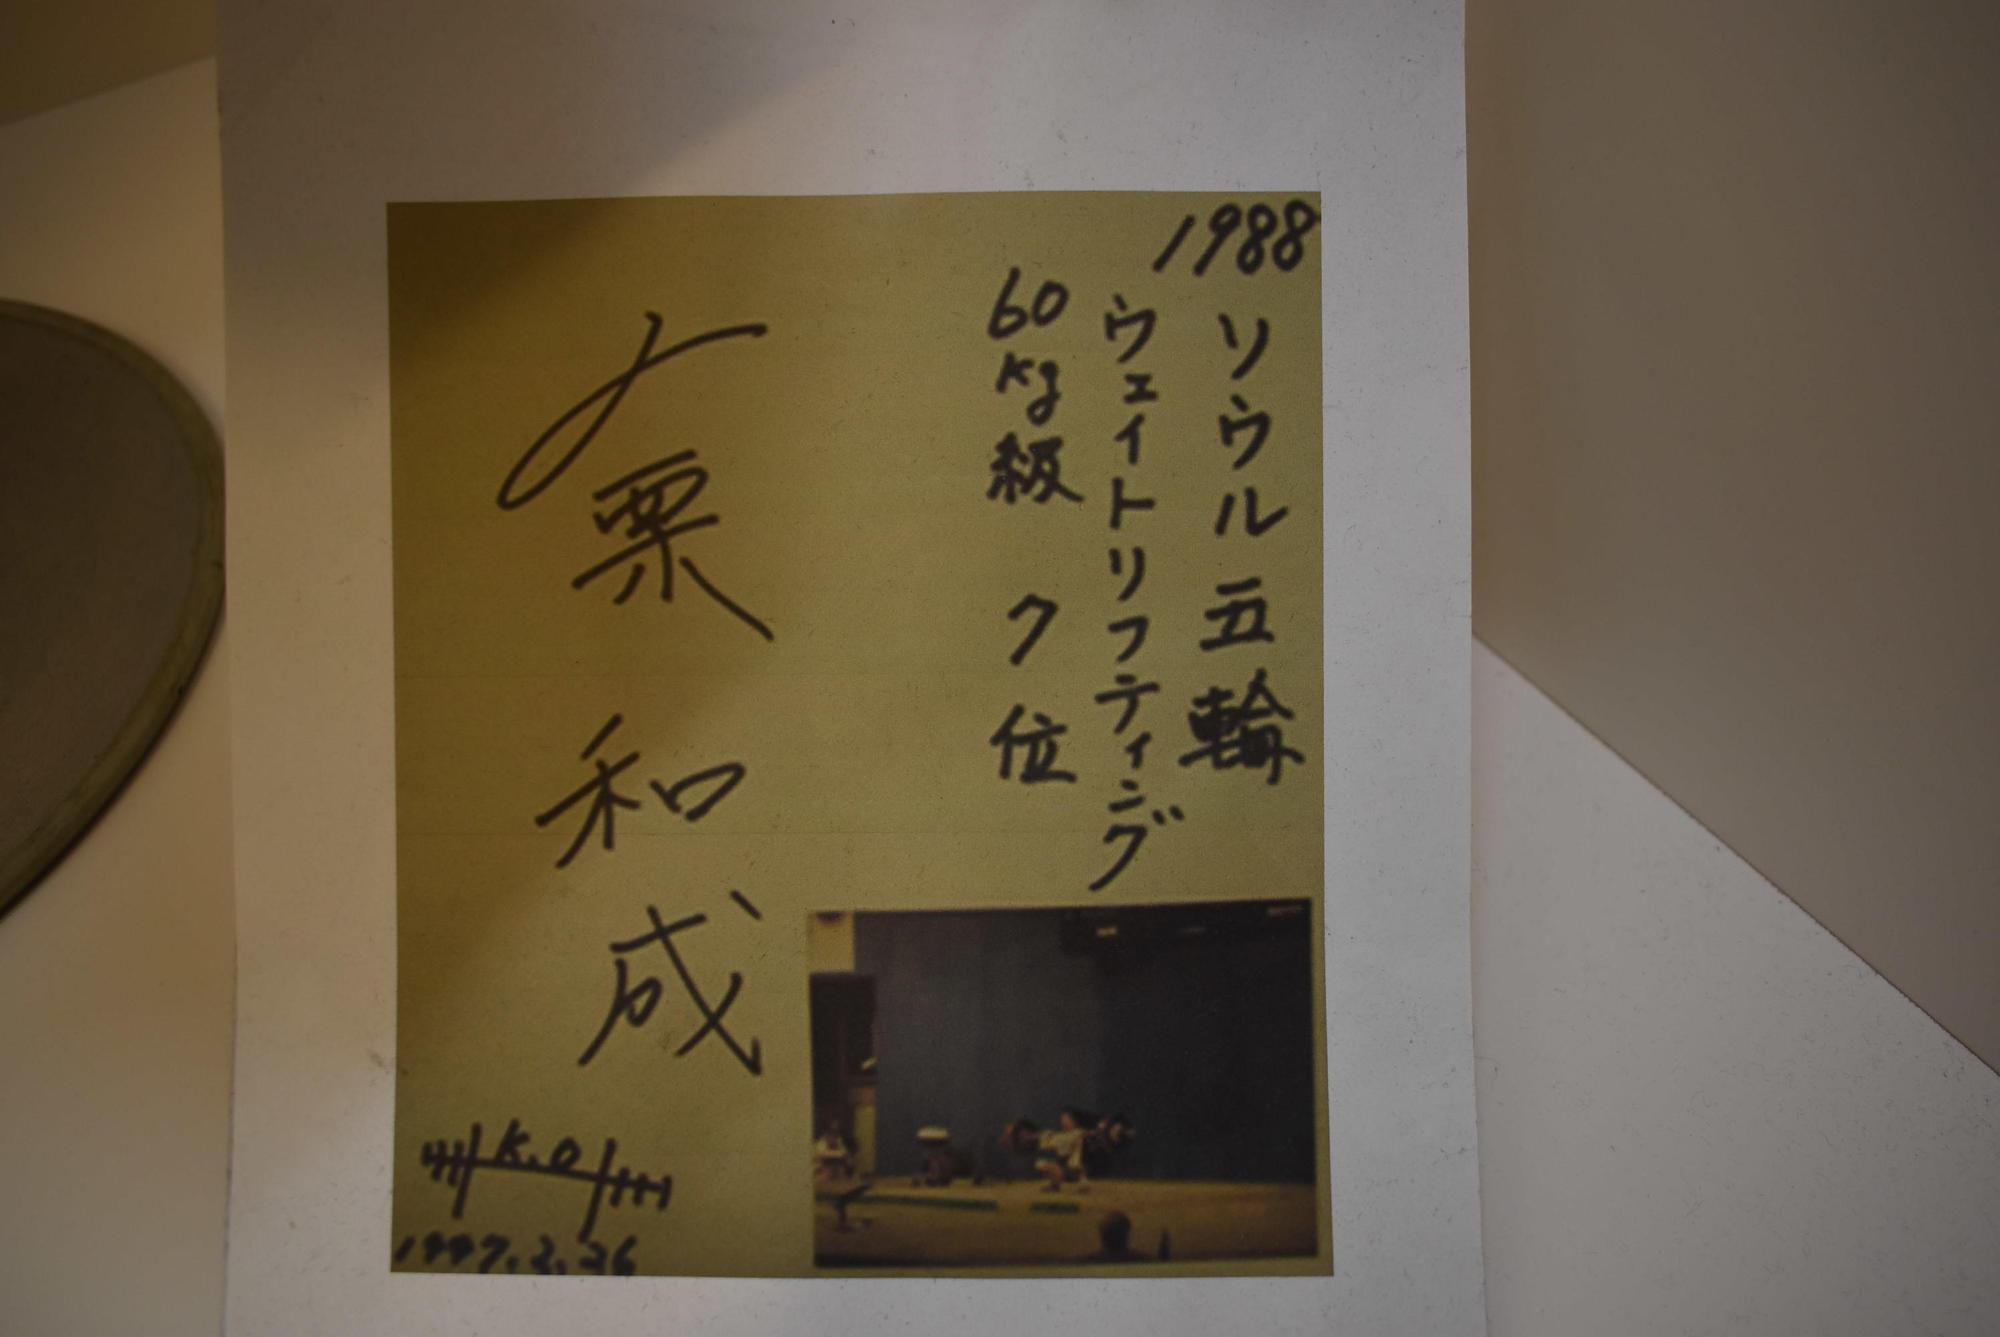 1988
ソウル五輪
ウェイトリフティング
60kg級 7位
栗 和成
K.O
1997.2.26